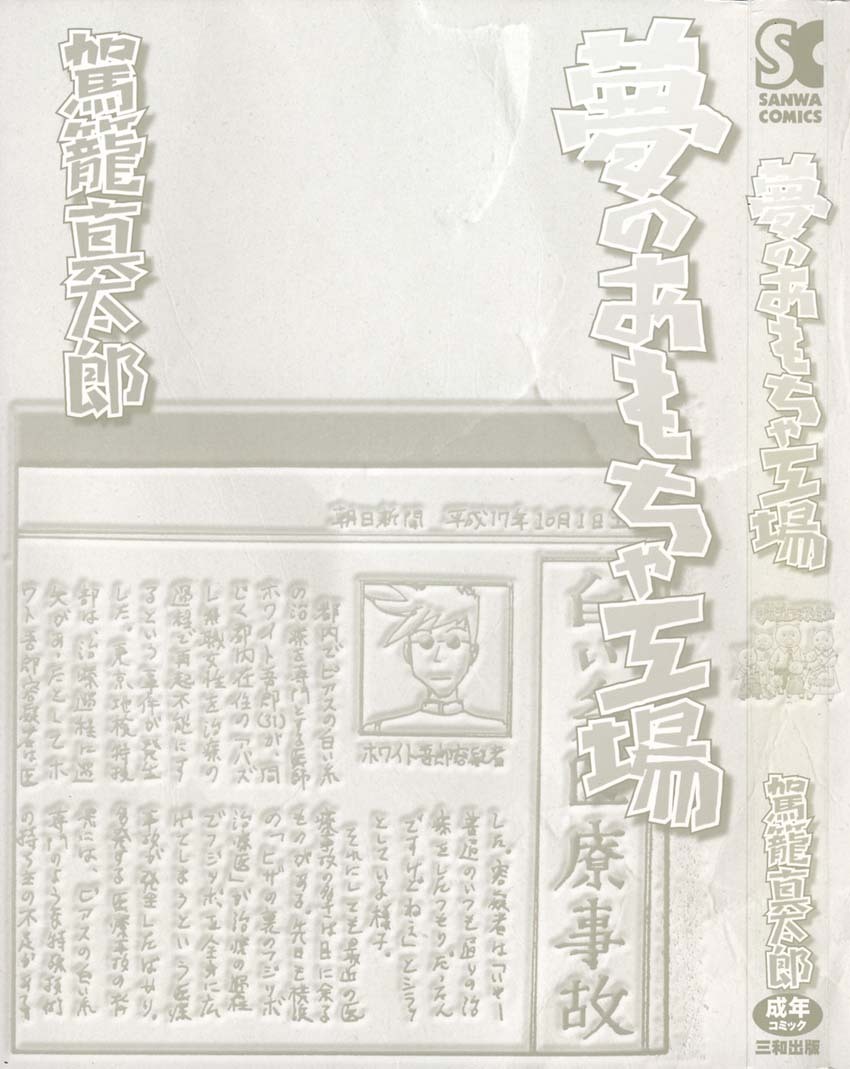 夢のおもちゃ工場
駕籠真太郎
朝日新聞 平成17年10月1日
医療事故
ホワイト吾郎容疑者
都内でピアスの白い糸
の治療を専門とする医師
ホワイト吾郎(31)が、同
じく都内在住のアバズ
レ無職女性を治療の
過程で再起不能にす
るという事件が発生
した。東京地検特捜
部は、治療過程に過
失があったとしてホ
ワイト吾郎容疑者を医
した。容疑者は「いやー
普通のいつも通りの治
療をしたつもりだったん
ですけどねえ」とシラッ
としている様子。
それにしても最近の医
療事故の多さは目に余る
ものがある。先日も横浜
の「ヒザの裏のフジツボ
治療医」が治療の過程
でフジツボを全身に広
げてしまうという医療
事故が発生したばかり。
多発する医療事故の背
景には、ピアスの白い糸
専門のような特殊技術
の持ち主の不足が
SC
SANWA
COMICS
夢のおもちゃ工場
駕籠真太郎
成年
コミック
三和出版